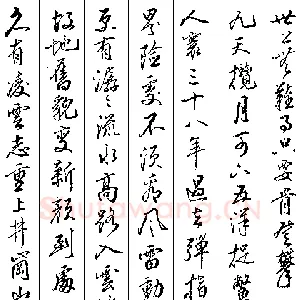 久有凌雲志重上井岡山
故地舊貌變新顏到處
更有潺潺流水高路入雲
界險處不須看風雷動
人寰三十八年過去彈指
九天攬月可下五洋捉鱉
世上無難事只要肯登攀
Shufawang.CN